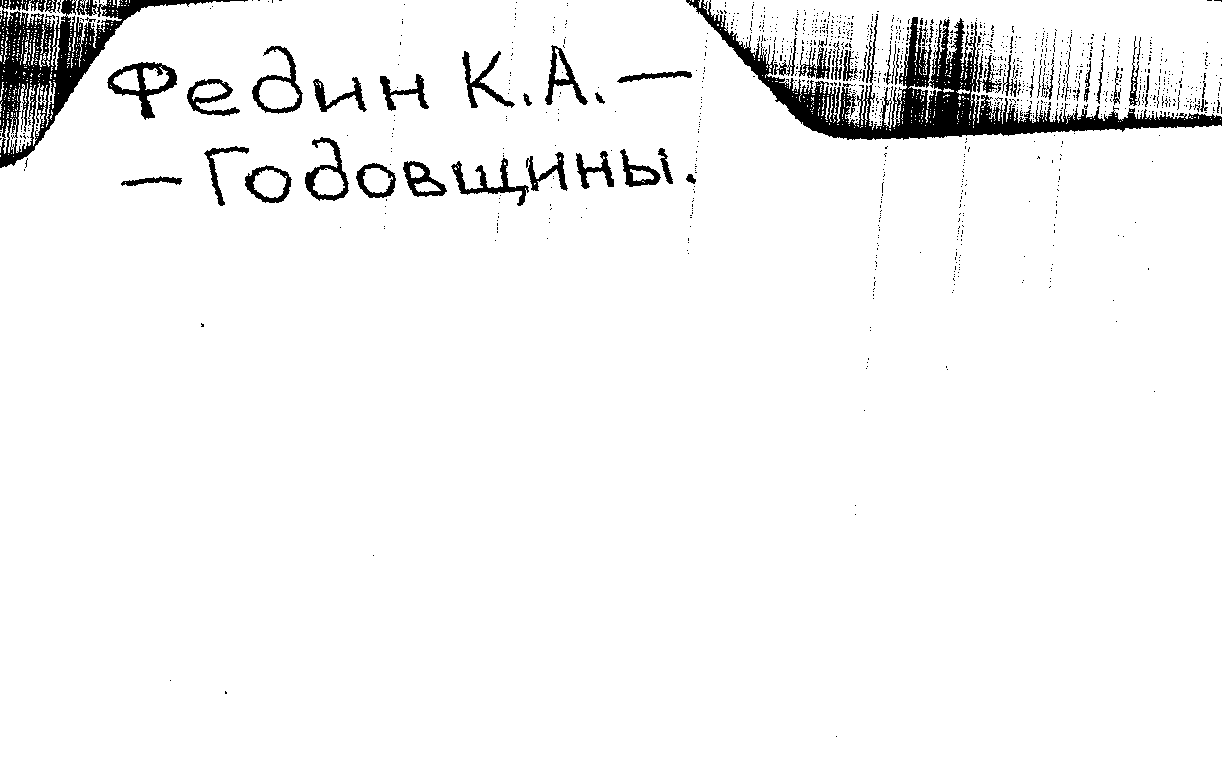 Федин К.А. —
— Годовщины.